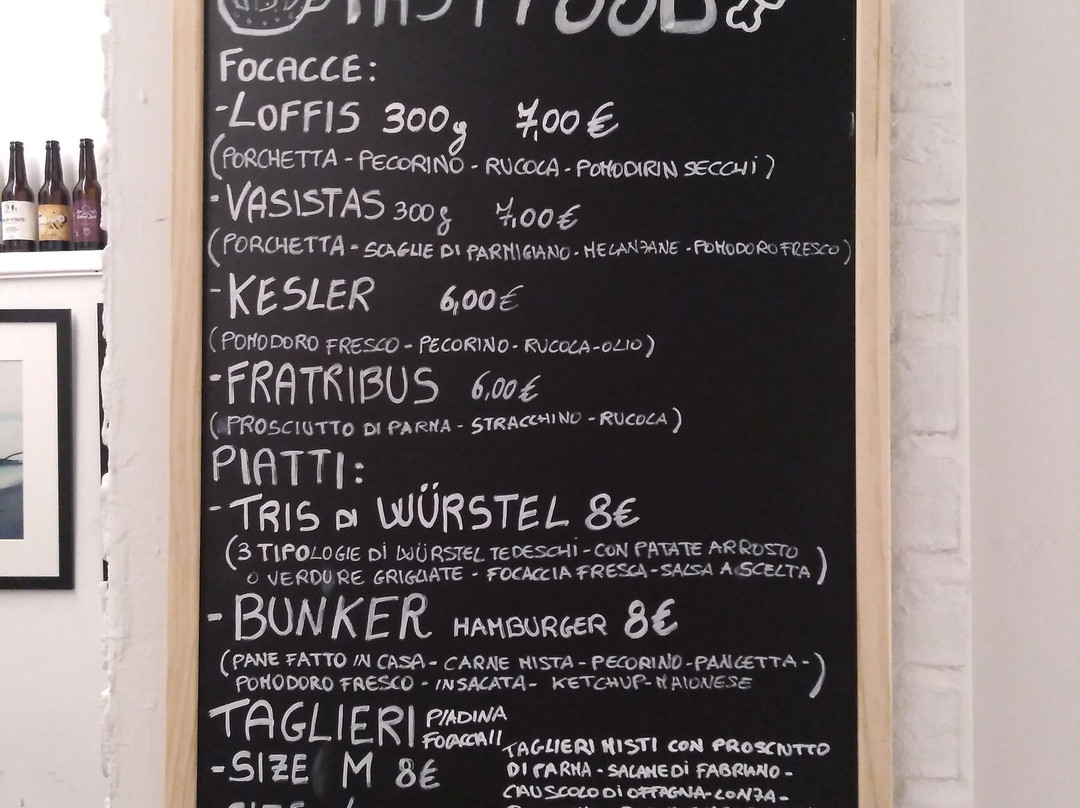 FAST FOOD
FOCACCE:
-LOFFIS 300g 7,00€
(PORCHETTA - PECORINO - RUCOLA - POMODIRIN SECCHI)
-VASISTAS 300g 7,00€
(PORCHETTA - SCAGLIE DI PARMIGIANO - MELANZANE - POMODORO FRESCO)
-KESLER 6,00€
(POMODORO FRESCO - PECORINO - RUCOLA - OLIO)
-FRATRIBUS 6,00€
(PROSCIUTTO DI PARMA - STRACCHINO - RUCOLA)
PIATTI:
-TRIS DI WÜRSTEL 8€
(3 TIPOLOGIE DI WÜRSTEL TEDESCHI - CON PATATE ARROSTO
O VERDURE GRIGLIATE - FOCACCIA FRESCA - SALSA A SCELTA)
-BUNKER HAMBURGER 8€
(PANE FATTO IN CASA - CARNE MISTA - PECORINO - PANCETTA -
POMODORO FRESCO - INSALATA - KETCHUP - MAIONESE)
TAGLIERI PIADINA
FOCACCIA
TAGLIERI MISTI CON PROSCIUTTO
-SIZE M 8€
DI PARMA - SALAME DI FABRIANO -
CIAUSCOLO DI OFFAGNA - LONZA -